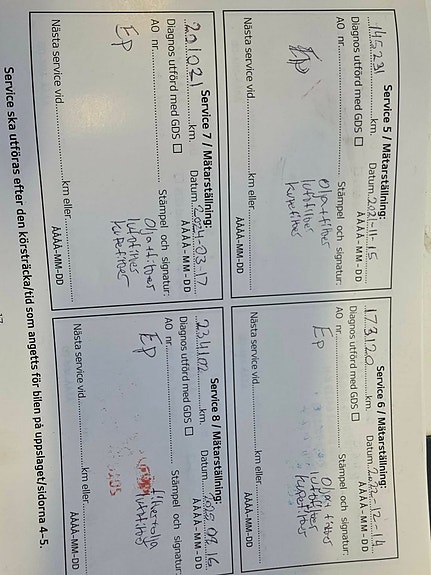 Service 5 / Mätarställning:
145231 km. Datum 2021-11-15
ÅÅÅÅ-MM-DD
Diagnos utförd med GDS ☐
AO nr. Stämpel och signatur:
EP
Olja+filter
luftfilter
kupefilter
Nästa service vid km eller
ÅÅÅÅ-MM-DD
Service 6 / Mätarställning:
173120 km. Datum
ÅÅÅÅ-MM-DD
Diagnos utförd med GDS ☐
AO nr. Stämpel och signatur:
EP
Olja+filter
luftfilter
kupefilter
Nästa service vid km eller
ÅÅÅÅ-MM-DD
Service 7 / Mätarställning:
201021 km. Datum 2024-03-17
ÅÅÅÅ-MM-DD
Diagnos utförd med GDS ☐
AO nr. Stämpel och signatur:
EP
Olja+filter
luftfilter
kupefilter
Nästa service vid km eller
ÅÅÅÅ-MM-DD
Service 8 / Mätarställning:
234102 km. Datum
ÅÅÅÅ-MM-DD
Diagnos utförd med GDS ☐
AO nr. Stämpel och signatur:
EP
Nästa service vid km eller
ÅÅÅÅ-MM-DD
Service ska utföras efter den körsträcka/tid som angetts för bilen på uppslaget/sidorna 4-5.